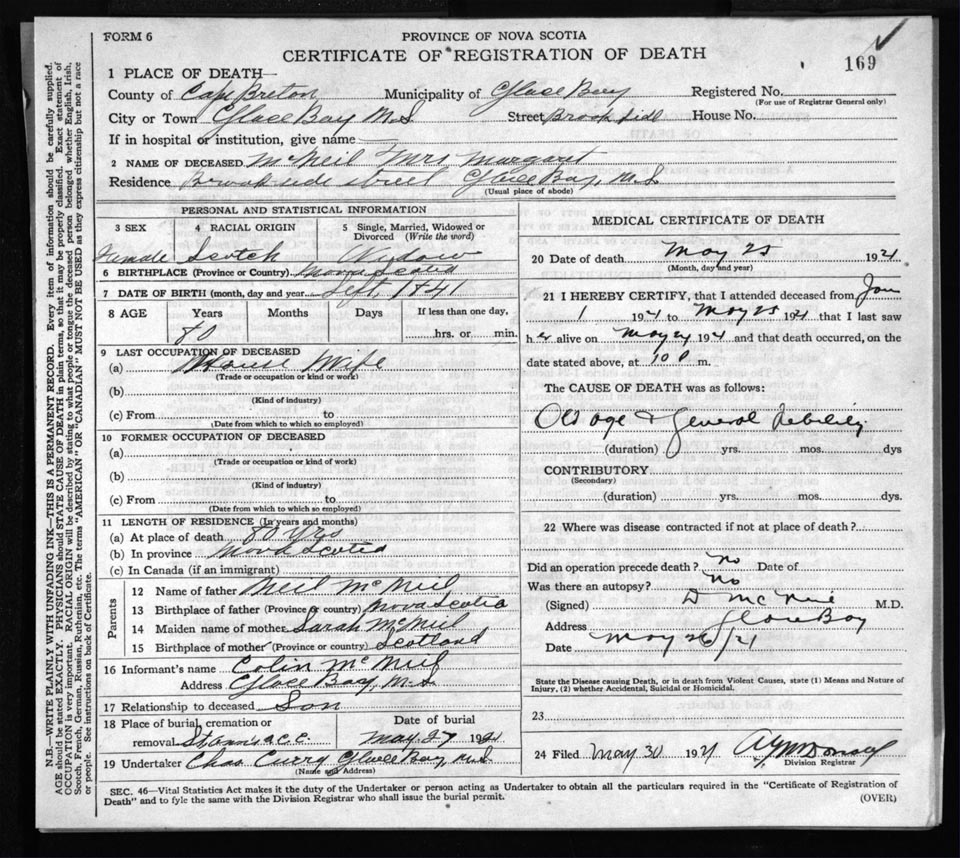 FORM 6
PROVINCE OF NOVA SCOTIA
CERTIFICATE OF REGISTRATION OF DEATH
169
1 PLACE OF DEATH—
County of Cape Breton Municipality of Glace Bay Registered No.
(For use of Registrar General only)
City or Town Glace Bay N.S. Street Brookside House No.
If in hospital or institution, give name
2 NAME OF DECEASED McNeil Mrs Margaret
Residence Brookside street Glace Bay, N.S
(Usual place of abode)
PERSONAL AND STATISTICAL INFORMATION
3 SEX 4 RACIAL ORIGIN 5 Single, Married, Widowed or Divorced (Write the word)
Female Scotch Widow
6 BIRTHPLACE (Province or Country) Nova Scotia
7 DATE OF BIRTH (month, day and year Sept, 1841
8 AGE Years Months Days If less than one day,
80 hrs. or min.
9 LAST OCCUPATION OF DECEASED
(a) House Wife
(Trade or occupation or kind or work)
(b)
(Kind of industry)
(c) From to
(Date from which to which so employed)
10 FORMER OCCUPATION OF DECEASED
(a)
(Trade or occupation or kind of work)
(b)
(Kind of industry)
(c) From to
(Date from which to which so employed)
11 LENGTH OF RESIDENCE (In years and months)
(a) At place of death 80 Yrs
(b) In province Nova Scotia
(c) In Canada (if an immigrant)
Parents
12 Name of father Neil McNeil
13 Birthplace of father (Province or country) Nova Scotia
14 Maiden name of mother Sarah McNeil
15 Birthplace of mother (Province or country) Scotland
16 Informant's name Colin McNeil
Address Glace Bay, N.S.
17 Relationship to deceased Son
18 Place of burial, cremation or Date of burial
removal May 27 1921
19 Undertaker Chas Curry Glace Bay, N.S
(Name and Address)
MEDICAL CERTIFICATE OF DEATH
20 Date of death May 25 1921
(Month, day and year)
21 I HEREBY CERTIFY, that I attended deceased from Jan
1 1921 to May 25 1921 that I last saw
her alive on May 24 1921 and that death occurred, on the
date stated above, at 10 P m.
The CAUSE OF DEATH was as follows:
Old age & General debility
(duration) yrs. mos. dys
CONTRIBUTORY
(Secondary)
(duration) yrs. mos. dys.
22 Where was disease contracted if not at place of death?
Did an operation precede death? No Date of
Was there an autopsy? No
(Signed) D McNeil M.D.
Address Glace Bay
Date May 26/21
State the Disease causing Death, or in death from Violent Causes, state (1) Means and Nature of
Injury, (2) whether Accidental, Suicidal or Homicidal.
23
24 Filed May 30 1921
Division Registrar
SEC. 46—Vital Statistics Act makes it the duty of the Undertaker or person acting as Undertaker to obtain all the particulars required in the "Certificate of Registration of
Death" and to fyle the same with the Division Registrar who shall issue the burial permit. (OVER)
N.B.—WRITE PLAINLY WITH UNFADING INK—THIS IS A PERMANENT RECORD. Every item of information should be carefully supplied.
AGE should be stated EXACTLY. PHYSICIANS should STATE CAUSE OF DEATH in plain terms, so that it may be properly classified. Exact statement of
OCCUPATION is very important. RACIAL ORIGIN will be described by stating to what people or tongue the deceased person belonged whether English, Irish,
Scotch, French, German, Russian, Ruthenian, etc. The terms "AMERICAN" OR "CANADIAN" MUST NOT BE USED as they express citizenship but not a race
or people. See instructions on back of Certificate.